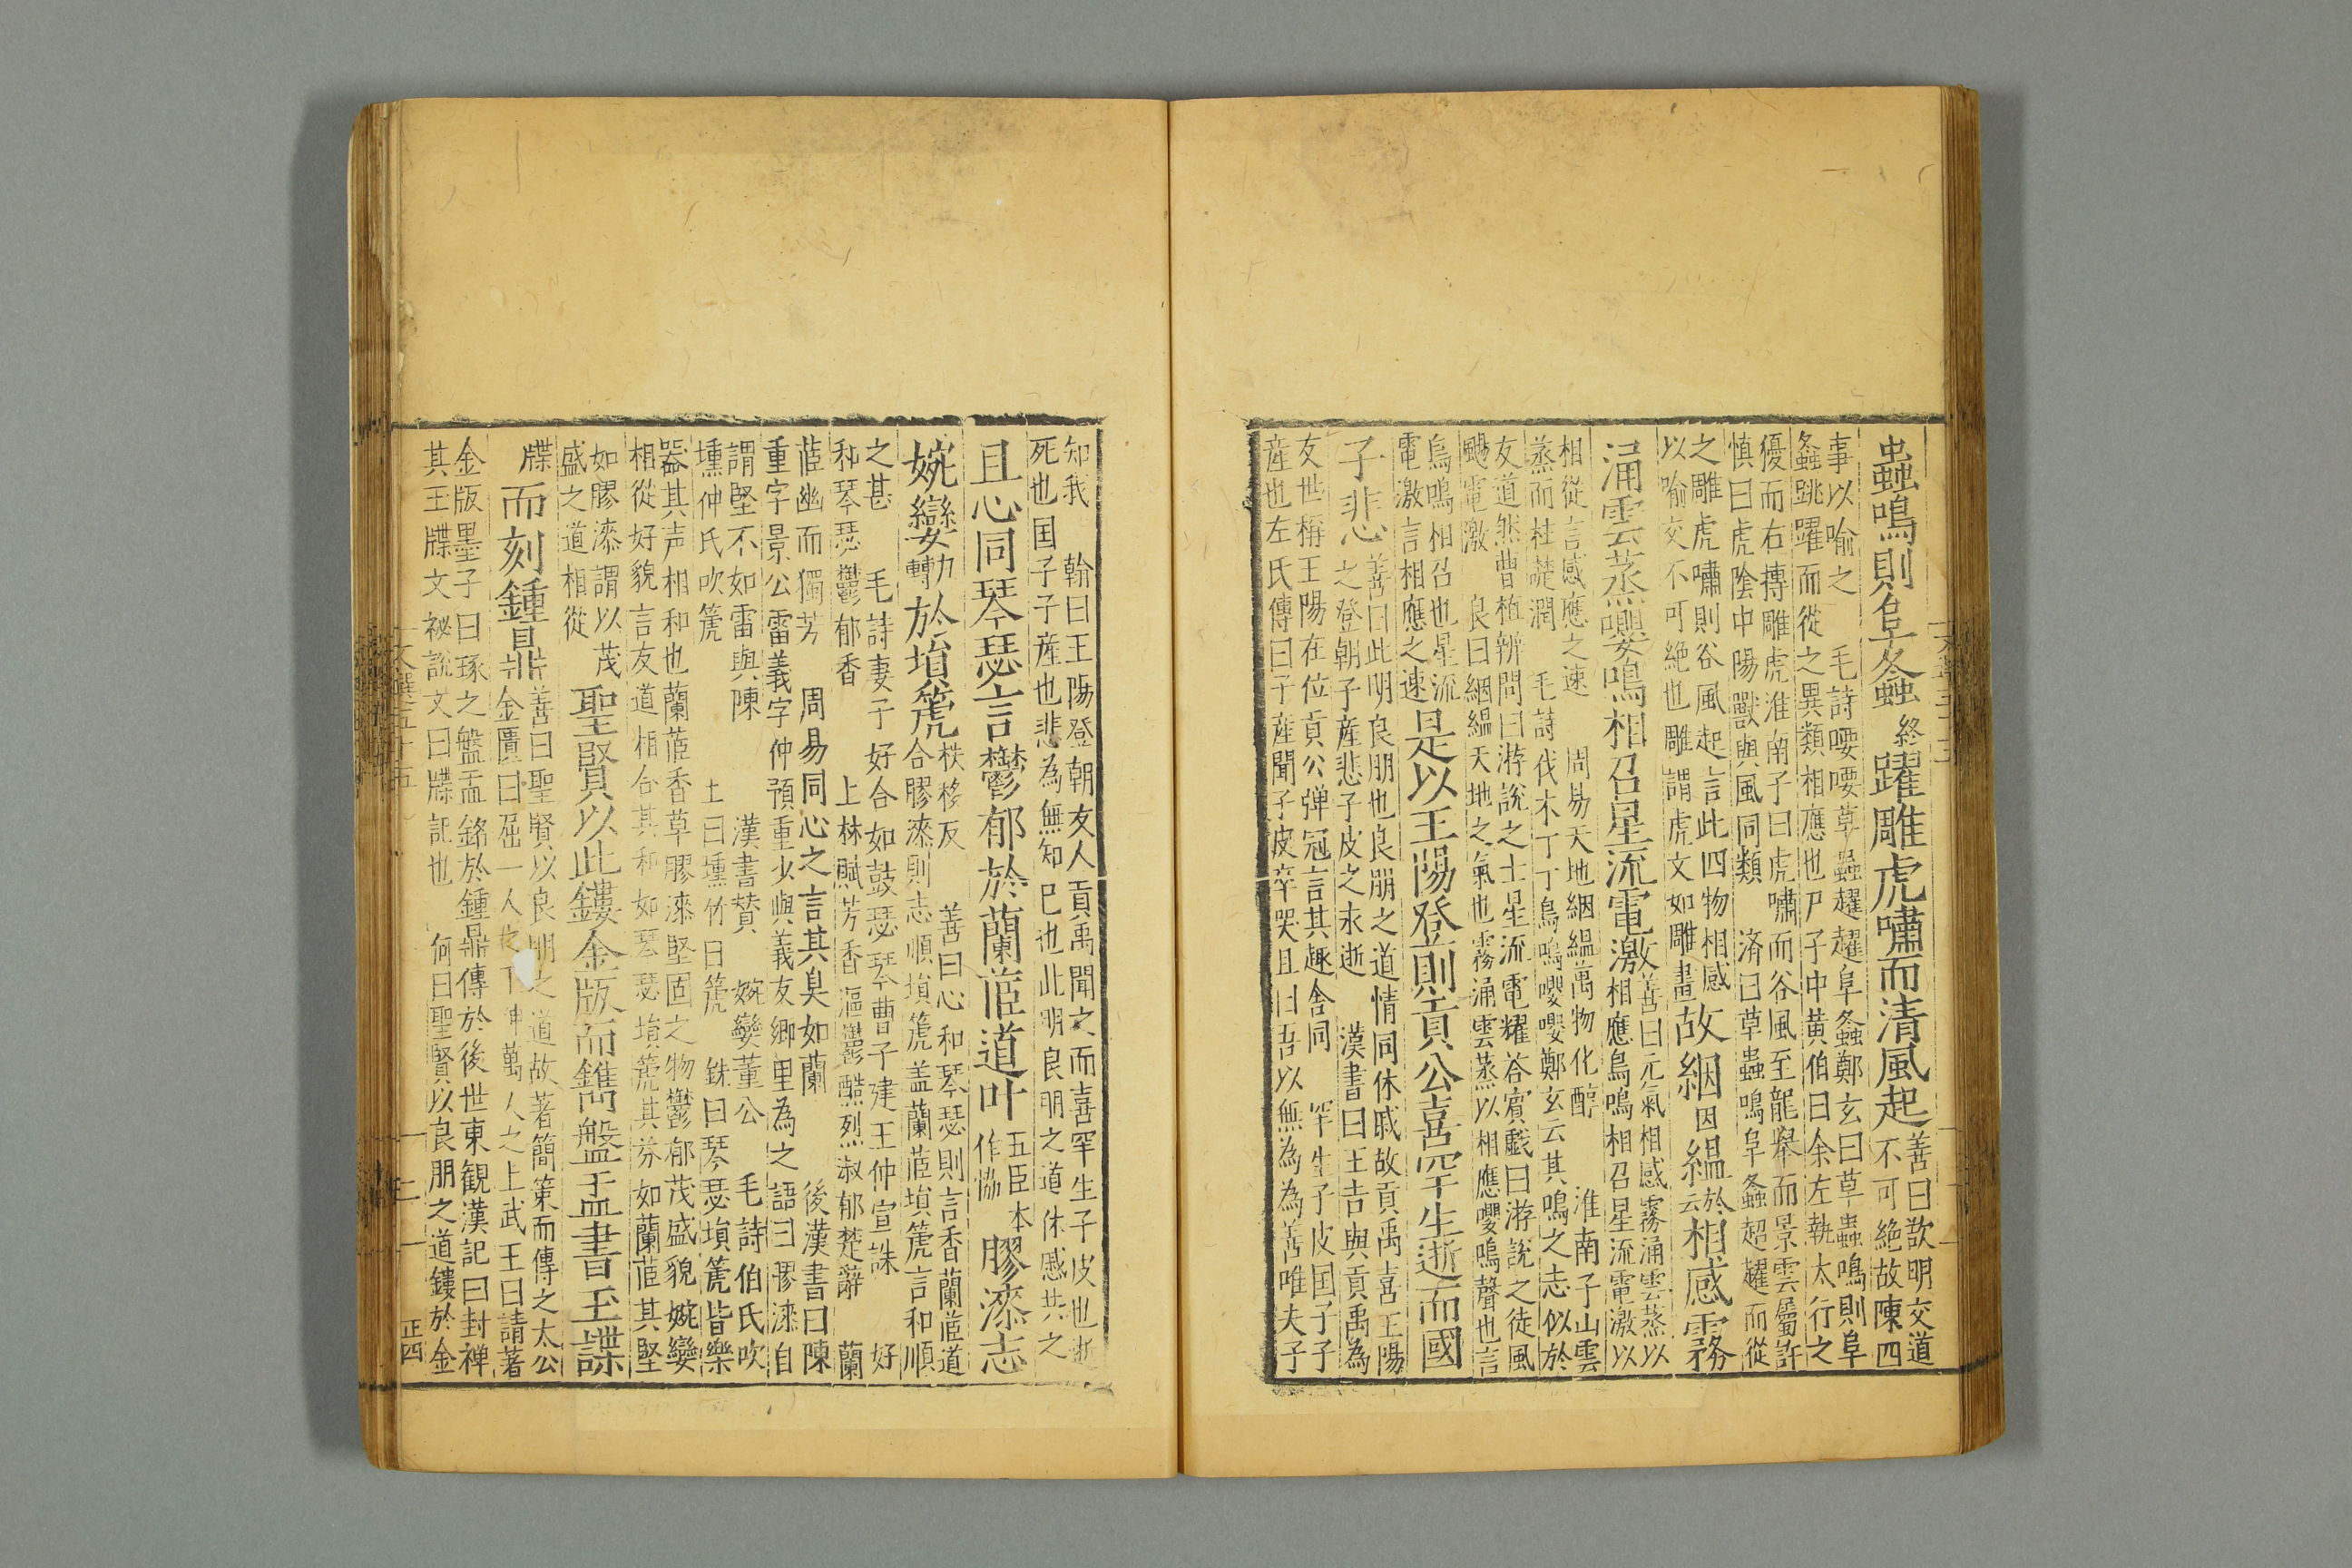 蟲鳴則阜螽終躍雕虎嘯而清風起善曰欲明交道
不可絶故陳四
事以喻之　毛詩喓喓草蟲趯趯阜螽鄭玄曰草蟲鳴則阜
螽跳躍而從之異類相應也尸子中黄伯曰余左執太行之
優而右摶雕虎淮南子曰虎嘯而谷風至龍舉而景雲屬許
慎曰虎陰中陽獸與風同類　済曰草蟲鳴阜螽超趯而從
之雕虎嘯則谷風起言此四物相感
以喻交不可絶也雕謂虎文如雕畫故絪因緼於云相感霧
涌雲蒸嚶鳴相召星流電激善曰元氣相感霧涌雲蒸以
相應鳥鳴相召星流電激以
相從言感應之速　周易天地絪緼萬物化醇　淮南子山雲
蒸而柱礎潤　毛詩伐木丁丁鳥鳴嚶嚶鄭玄云其鳴之志似於
友道然曹植辨問曰游說之士星流電耀荅賓戲曰游說之徒風
颺電激　良曰絪緼天地之氣也霧涌雲蒸以相應嚶鳴聲也言
鳥鳴相召也星流
電激言相應之速是以王陽登則貢公喜罕生逝而國
子悲善曰此明良朋也良朋之道情同休戚故貢禹喜王陽
之登朝子産悲子皮之永逝　漢書曰王吉與貢禹為
友世稱王陽在位貢公弹冠言其趣舍同　罕生子皮国子子
産也左氏傳曰子産聞子皮卒哭且曰吾以無為為善唯夫子
知我　翰曰王陽登朝友人貢禹聞之而喜罕生子皮也逝
死也国子子産也悲為無知已也此明良明之道休慼共之
且心同琴瑟言鬱郁於蘭茝道叶五臣本
作協膠漆志
婉孌力轉於塤篪秩移反　善曰心和琴瑟則言香蘭茝道
合膠漆則志順塤篪盖蘭茝塤篪言和順
之甚　毛詩妻子好合如鼓瑟琴曹子建王仲宣誄　好
和琴瑟鬱郁香　上林賦芳香漚鬱酷烈淑郁楚辭　蘭
茝幽而獨芳　周易同心之言其臭如蘭　後漢書曰陳
重字景公雷義字仲預重少與義友鄉里為之語曰膠漆自
謂堅不如雷與陳　漢書賛　婉孌董公　毛詩伯氏吹
壎仲氏吹篪　土曰壎竹曰篪　銑曰琴瑟塤篪皆樂
器其声相和也蘭茝香草膠漆堅固之物鬱郁茂盛貌婉孌
相從好貌言友道相合其和如琴瑟塤篪其芬如蘭茝其堅
如膠漆謂以茂
盛之道相從　聖賢以此鏤金版而鐫盤盂書玉諜
牒而刻鍾鼎善曰聖賢以良明之道故著簡策而傳之太公
金匱曰屈一人之下伸萬人之上武王曰請著
金版墨子曰琢之盤盂銘於鍾鼎傳於後世東観漢記曰封禅
其玉牒文祕說文曰牒記也　何曰聖賢以良朋之道鏤於金
文選五十五
二一
正四